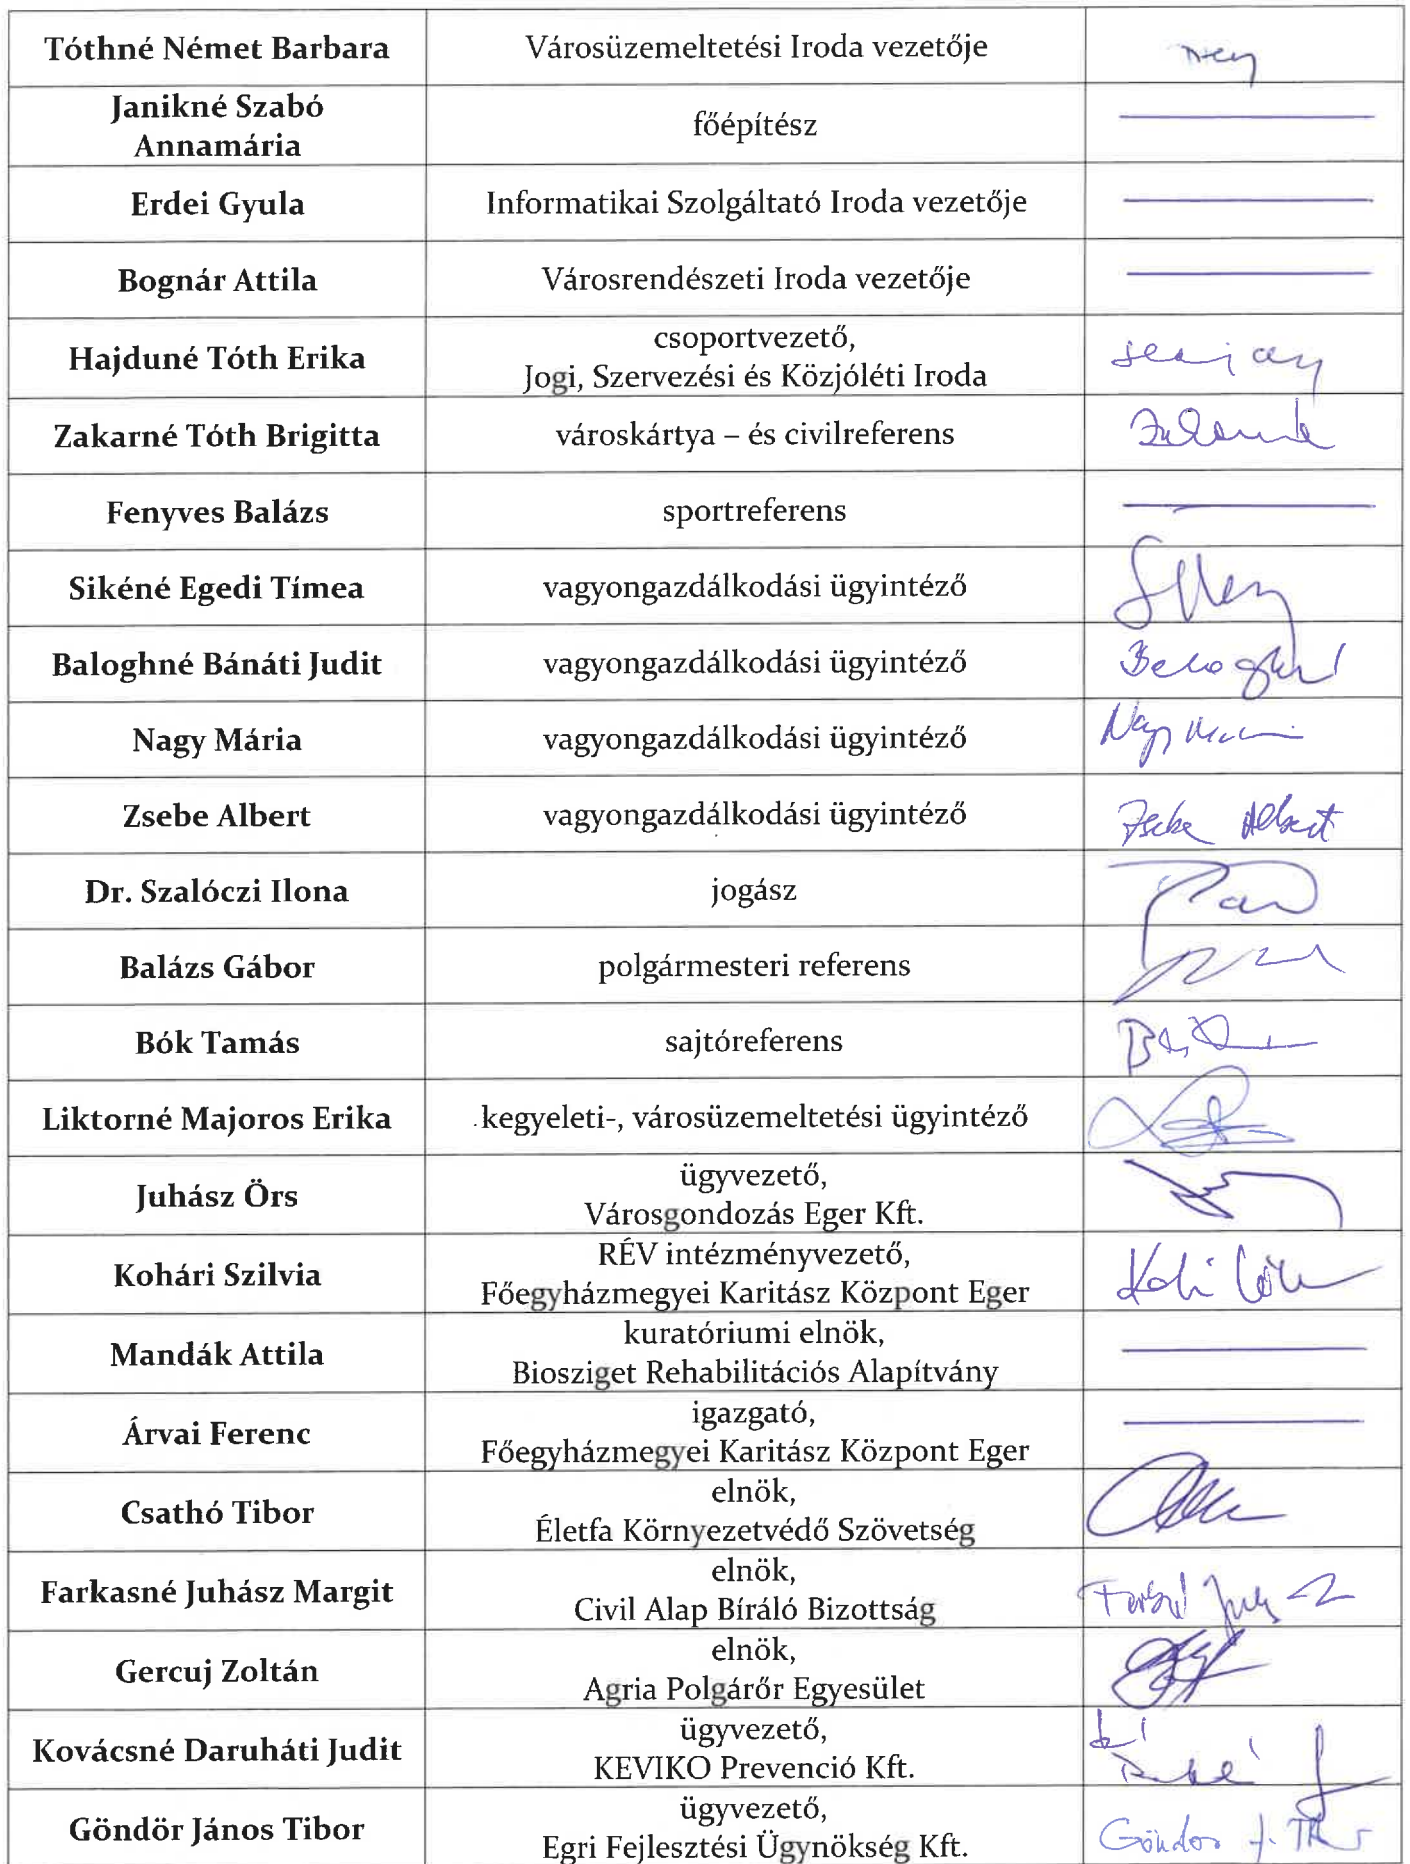 Tóthné Német Barbara Városüzemeltetési Iroda vezetője
Janikné Szabó
Annamária
főépítész
Erdei Gyula Informatikai Szolgáltató Iroda vezetője
Bognár Attila Városrendészeti Iroda vezetője
Hajduné Tóth Erika
csoportvezető,
Jogi, Szervezési és Közjóléti Iroda
Zakarné Tóth Brigitta városkártya – és civilreferens
Fenyves Balázs sportreferens
Sikéné Egedi Tímea vagyongazdálkodási ügyintéző
Baloghné Bánáti Judit vagyongazdálkodási ügyintéző
Nagy Mária vagyongazdálkodási ügyintéző
Zsebe Albert vagyongazdálkodási ügyintéző Zsebe Albert
Dr. Szalóczi Ilona jogász
Balázs Gábor polgármesteri referens
Bók Tamás sajtóreferens
Liktorné Majoros Erika kegyeleti-, városüzemeltetési ügyintéző
Juhász Örs
ügyvezető,
Városgondozás Eger Kft.
Kohári Szilvia
RÉV intézményvezető,
Főegyházmegyei Karitász Központ Eger
Mandák Attila
kuratóriumi elnök,
Biosziget Rehabilitációs Alapítvány
Árvai Ferenc
igazgató,
Főegyházmegyei Karitász Központ Eger
Csathó Tibor
elnök,
Életfa Környezetvédő Szövetség
Farkasné Juhász Margit
elnök,
Civil Alap Bíráló Bizottság
Gercuj Zoltán
elnök,
Agria Polgárőr Egyesület
Kovácsné Daruháti Judit
ügyvezető,
KEVIKO Prevenció Kft.
Göndör János Tibor
ügyvezető,
Egri Fejlesztési Ügynökség Kft.